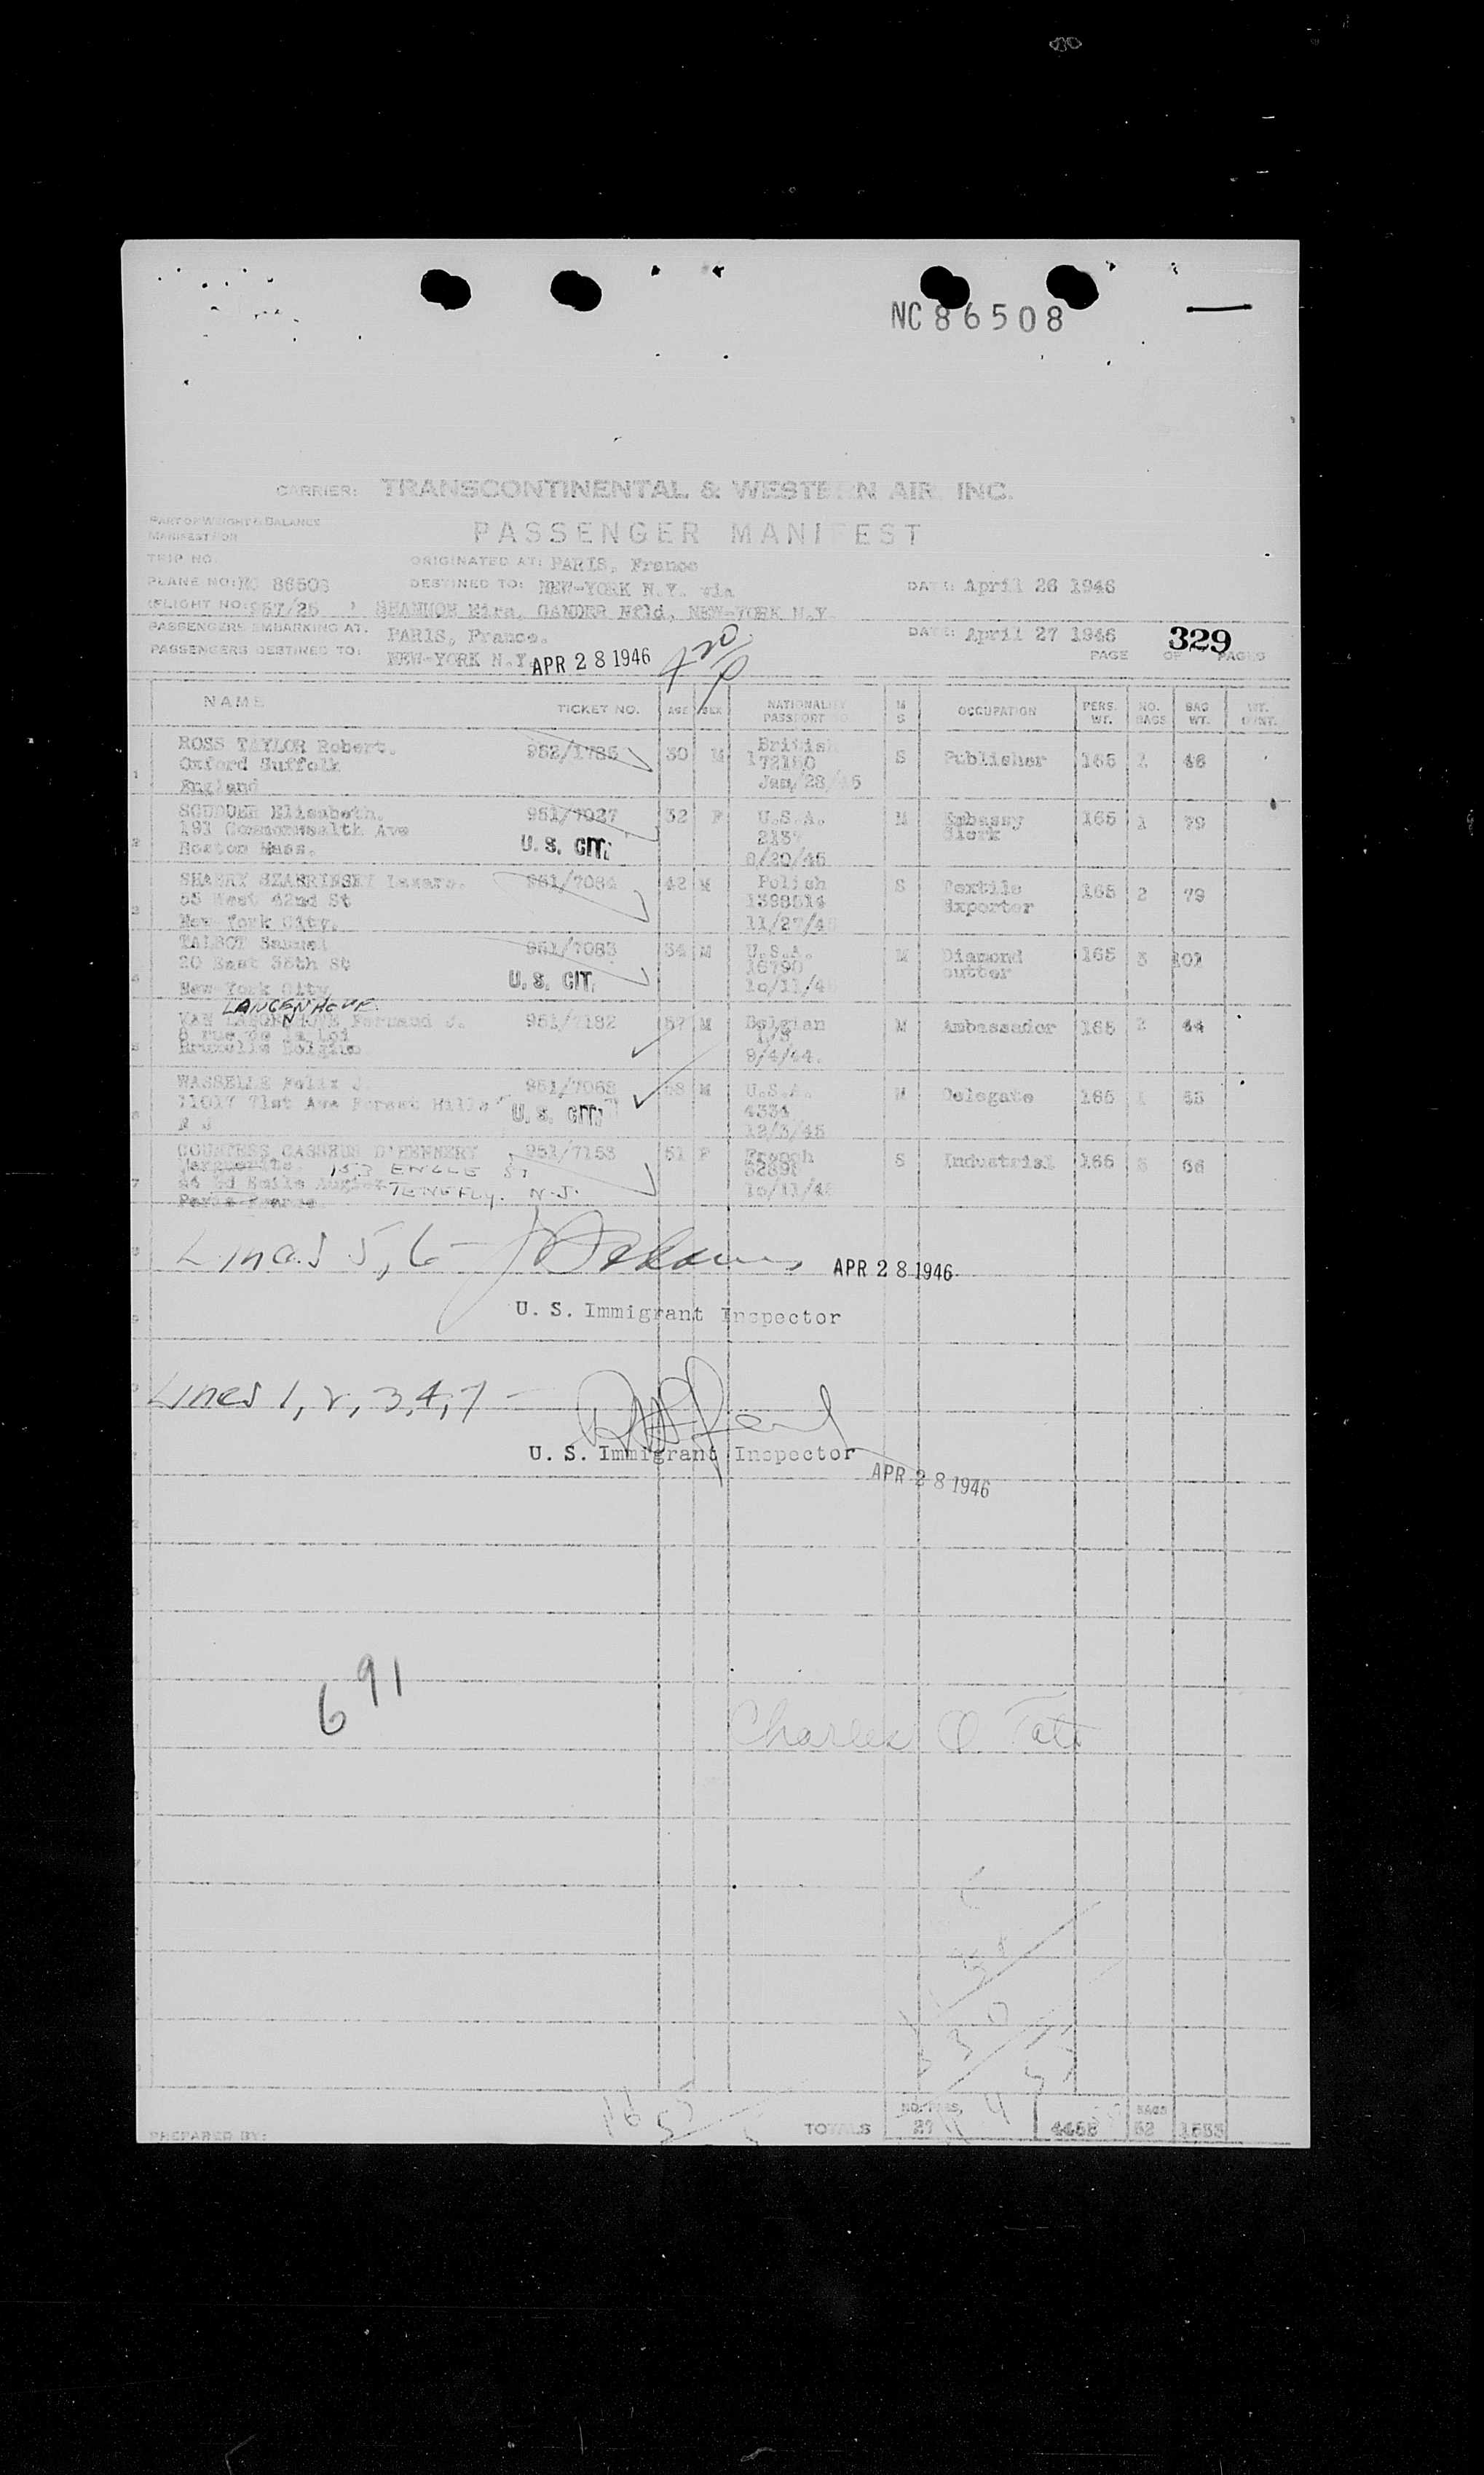 NC 86508
CARRIER: TRANSCONTINENTAL & WESTERN AIR INC.
PART OF WEIGHT & BALANCE
MANIFEST FOR
PASSENGER MANIFEST
TRIP NO.
ORIGINATED AT: PARIS, France
PLANE NO: NC 86508
DESTINED TO: NEW-YORK N.Y. via
DATE: April 26 1946
(FLIGHT NO: 967/25 ) SHANNON Eire, GANDER Nfld, NEW-YORK N.Y.
PASSENGERS EMBARKING AT: PARIS, France.
DATE: April 27 1946
329
PASSENGERS DESTINED TO: NEW-YORK N.Y. APR 28 1946
PAGE OF PAGES
NAME TICKET NO. AGE SEX NATIONALITY PASSPORT NO. M S OCCUPATION PERS. WT. NO. BAGS BAG WT.
1 ROSS TAYLOR Robert. 952/1785 30 M British S Publisher 165 1 46
Oxford Suffolk 172180
England Jan/28/46
2 SCUDDER Elisabeth. 951/7027 32 F U.S.A. M Embassy 165 1 79
193 Commonwealth Ave 2137 Clerk
Boston Mass. U. S. CIT. 6/20/45
3 SHABRY SZABRINSKI Lazare. 951/7084 42 M Polish S Textile 165 2 79
55 West 42nd St 1398614 Exporter
New York City. 11/27/4
4 TALBOT Samuel 951/7083 34 M U.S.A. M Diamond 165 3 101
20 East 38th St 16790 cutter
New York City U. S. CIT. 10/11/4
LANGENHOVE
5 VAN LANGENHOVE Fernand J. 951/7182 57 M Belgian M Ambassador 165 2 44
8 rue de la Loi 1/3
Bruxelle Belgium 9/4/44.
6 WASSELLE Felix J 951/7068 58 M U.S.A. M Delegate 165 1 55
11017 71st Ave Forest Hills 4334
N J U. S. CIT. 12/3/45
7 COUNTESS CASSEUS D'HENNERY 951/7153 51 F French S Industrial 165 3 66
Marguerite. 153 ENGLE ST 52898
44 Bd Emile Augier TENEFLY. N.J. 10/11/4
Paris France.
Lines 5, 6 - APR 28 1946
U. S. Immigrant Inspector
Lines 1, 2, 3, 4, 7 -
U. S. Immigrant Inspector
APR 28 1946
691
Charles O Tate
NO. PASS. BAGS
TOTALS 27 4455 52 1553
PREPARED BY: